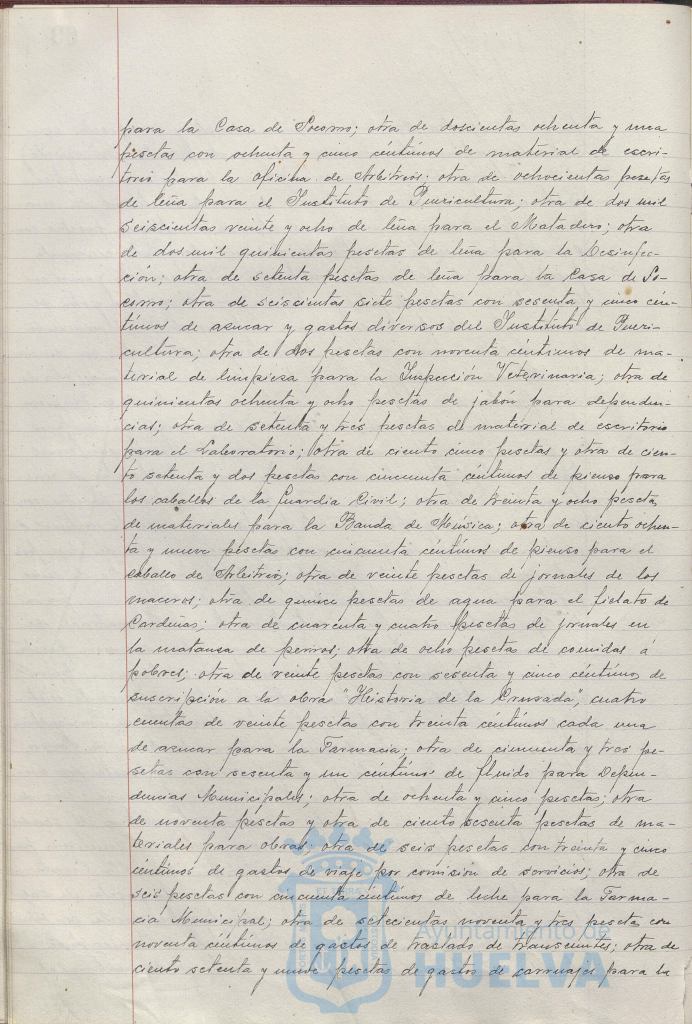 para la Casa de Socorro; otra de doscientas ochenta y una
pesetas con ochenta y cinco céntimos de material de escri-
torio para la oficina de Arbitrios; otra de ochocientas pesetas
de leña para el Instituto de Puericultura; otra de dos mil
seiscientas veinte y ocho de leña para el Matadero; otra
de dos mil quinientas pesetas de leña para la Desinfec-
ción; otra de setenta pesetas de leña para la Casa de So-
corro; otra de seiscientas siete pesetas con sesenta y cinco cén-
timos de azucar y gastos diversos del Instituto de Pueri-
cultura; otra de dos pesetas con noventa céntimos de ma-
terial de limpieza para la Inspección Veterinaria; otra de
quinientas ochenta y ocho pesetas de jabon para dependen-
cias; otra de setenta y tres pesetas de material de escritorio
para el Laboratorio; otra de ciento cinco pesetas y otra de cien-
to setenta y dos pesetas con cincuenta céntimos de pienso para
los caballos de la Guardia Civil; otra de treinta y ocho pesetas
de materiales para la Banda de Música; otra de ciento ochen-
ta y nueve pesetas con cincuenta céntimos de pienso para el
caballo de Arbitrios; otra de veinte pesetas de jornales de los
maceros; otra de quince pesetas de agua para el fielato de
Cardeñas; otra de cuarenta y cuatro pesetas de jornales en
la matanza de perros; otra de ocho pesetas de comidas á
pobres; otra de veinte pesetas con sesenta y cinco céntimos de
suscripción a la obra "Historia de la Cruzada", cuatro
cuentas de veinte pesetas con treinta céntimos cada una
de azucar para la Farmacia; otra de cincuenta y tres pe-
setas con sesenta y un céntimos de fluido para Depen-
dencias Municipales; otra de ochenta y cinco pesetas; otra
de noventa pesetas y otra de ciento sesenta pesetas de ma-
teriales para obras; otra de seis pesetas con treinta y cinco
céntimos de gastos de viaje por comisión de servicios; otra de
seis pesetas con cincuenta céntimos de leche para la Farma-
cia Municipal; otra de setecientas noventa y tres pesetas con
noventa céntimos de gastos de traslado de transeuntes; otra de
ciento setenta y nueve pesetas de gastos de carruajes para la
Ayuntamiento de
HUELVA